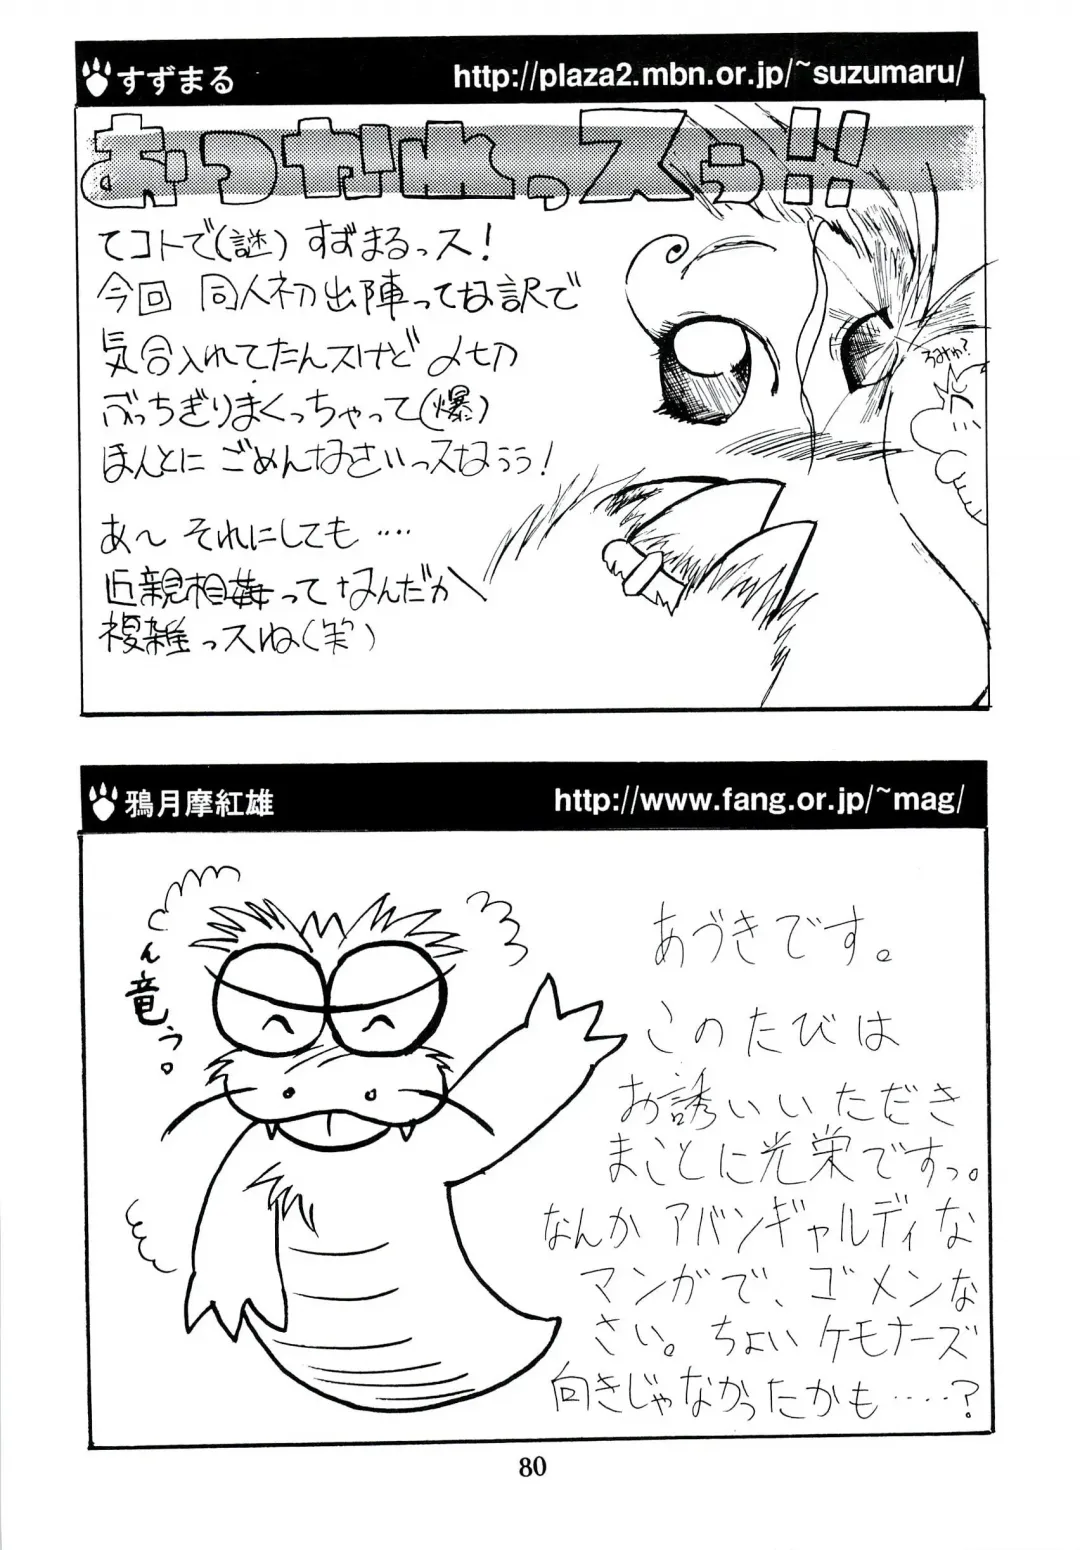 すずまる
http://plaza2.mbn.or.jp/~suzumaru/
おつかれっスぅ!!
てコトで(謎) すずまるっス!
今回 同人初出陣ってな訳で
気合入れてたんスけど〆切
ぶっちぎりまくっちゃって(爆)
ほんとに ごめんなさいっスなぅぅ!
あ～ それにしても‥‥
近親相姦ってなんだか
複雑っスね(笑)
るみゅ?
鴉月摩紅雄
http://www.fang.or.jp/~mag/
竜
あづきです。
このたびは
お誘いいただき
まことに光栄ですっ。
なんか アバンギャルディな
マンガで、ゴメンな
さい。ちょい ケモナーズ
向きじゃなかったかも……?
80